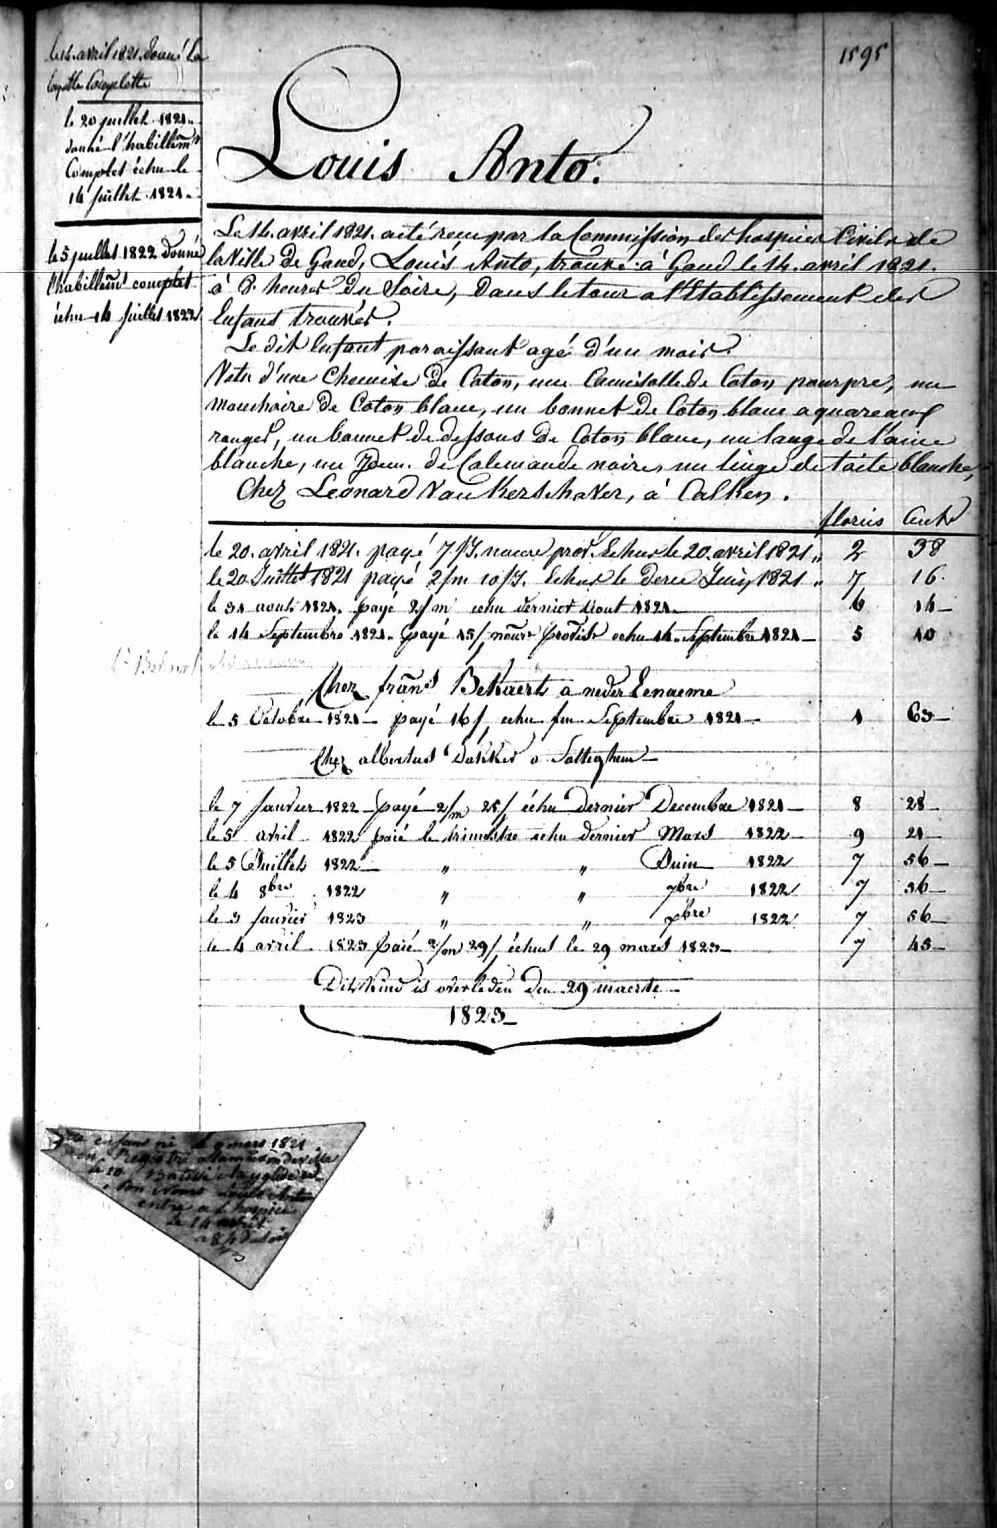 1595
le 14. avril 1821. donné la
layette Complette
le 20 juillet 1821.
donné l'habillemt
Complet échu le
14 juillet 1821.
le 5 juillet 1822 donné
l'habillemt complet
échu 14 juillet 1822
Louis Anto.
Le 14. avril 1821. a été reçu par la Commission des hospices Civils de
la Ville de Gand, Louis Anto, trouvé à Gand le 14. avril 1821.
à 8. heures du Soire, Dans le tour a l'Etablissement des
Enfans trouvés.
Le dit Enfant paraissant agé d'un mois.
Vetu d'une Chemise de Coton, une Camisolle de Coton pourpre, un
mouchoire de Coton blanc, un bonnet de Coton blanc a quareaux
rouges, un bonnet de dessous de Coton blanc, un lange de laine
blanche, un Idem. de Calemande noire, un linge de toile blanche,
Chez Leonard Van Kerschaver, à Calken.
florins Cents
le 20. avril 1821. payé 7 Js. nouve provre Echus le 20. avril 1821 „ 2 38
le 20 Juillet 1821 payé 2/m 10/J. Echus le derer Juin 1821 „ 7 16.
le 31 aout 1821. payé 2/m echu dernier aout 1821 6 14
le 14 Septembre 1821. payé 15/J nouve provre echu 14 Septembre 1821 5 10
Chez frans Bekaert a neder Eename
le 5 Octobre 1821 payé 16/J echu fin Septembre 1821 1 63
Chez albertus Dakker a Sotteghem
le 7 Janvier 1822 payé 2/m 25/J échu dernier Decembre 1821 8 28
le 5 avril 1822 paié le trimestre echu dernier Mars 1822 9 21
le 5 Juillet 1822 „ „ Juin 1822 7 56
le 4 8bre 1822 „ „ 7bre 1822 7 56
le 3 Janvier 1823 „ „ xbre 1822 7 56
le 4 avril 1823 paié 2/m 29/J échus le 29 mars 1823 7 45
Dit Kind is overleden den 29 maerte
1823
enfant né le 9 mars 1821
le 10
Son Nom Louis Anto
entré a L'hospice
Le 14 avril
a 8/h du soir